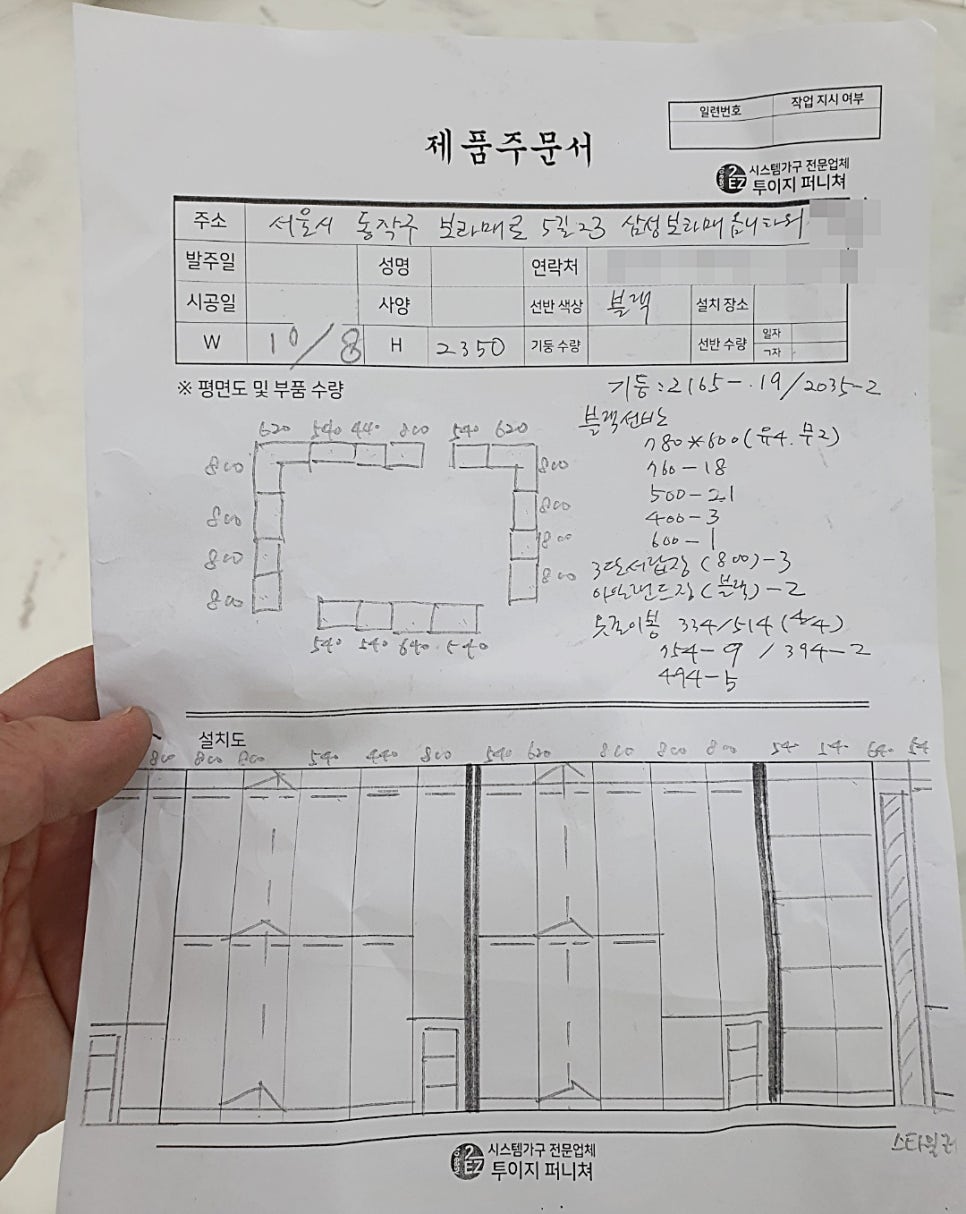 일련번호 작업 지시 여부
제품주문서
시스템가구 전문업체
투이지 퍼니쳐
주소 서울시 동작구 보라매로 5길 23 삼성보라매옴니타워
발주일 성명 연락처
시공일 사양 선반 색상 블랙 설치 장소
W 10/8 H 2350 기둥 수량 선반 수량 일자 ㄱ자
※ 평면도 및 부품 수량
기둥:2165-19/2035-2
블랙선반
780*600(유4.무2)
760-18
500-21
400-3
600-1
3단서랍장(800)-3
아일랜드장(블랙)-2
옷걸이봉 334/514(4/4)
754-9 / 394-2
494-5
620 540 440 800 540 620
800 800
800 800
800 800
800 800
540 540 640 540
설치도
800 800 800 540 440 800 540 620 800 800 800 54 54 640 54
스타일러
시스템가구 전문업체
투이지 퍼니쳐